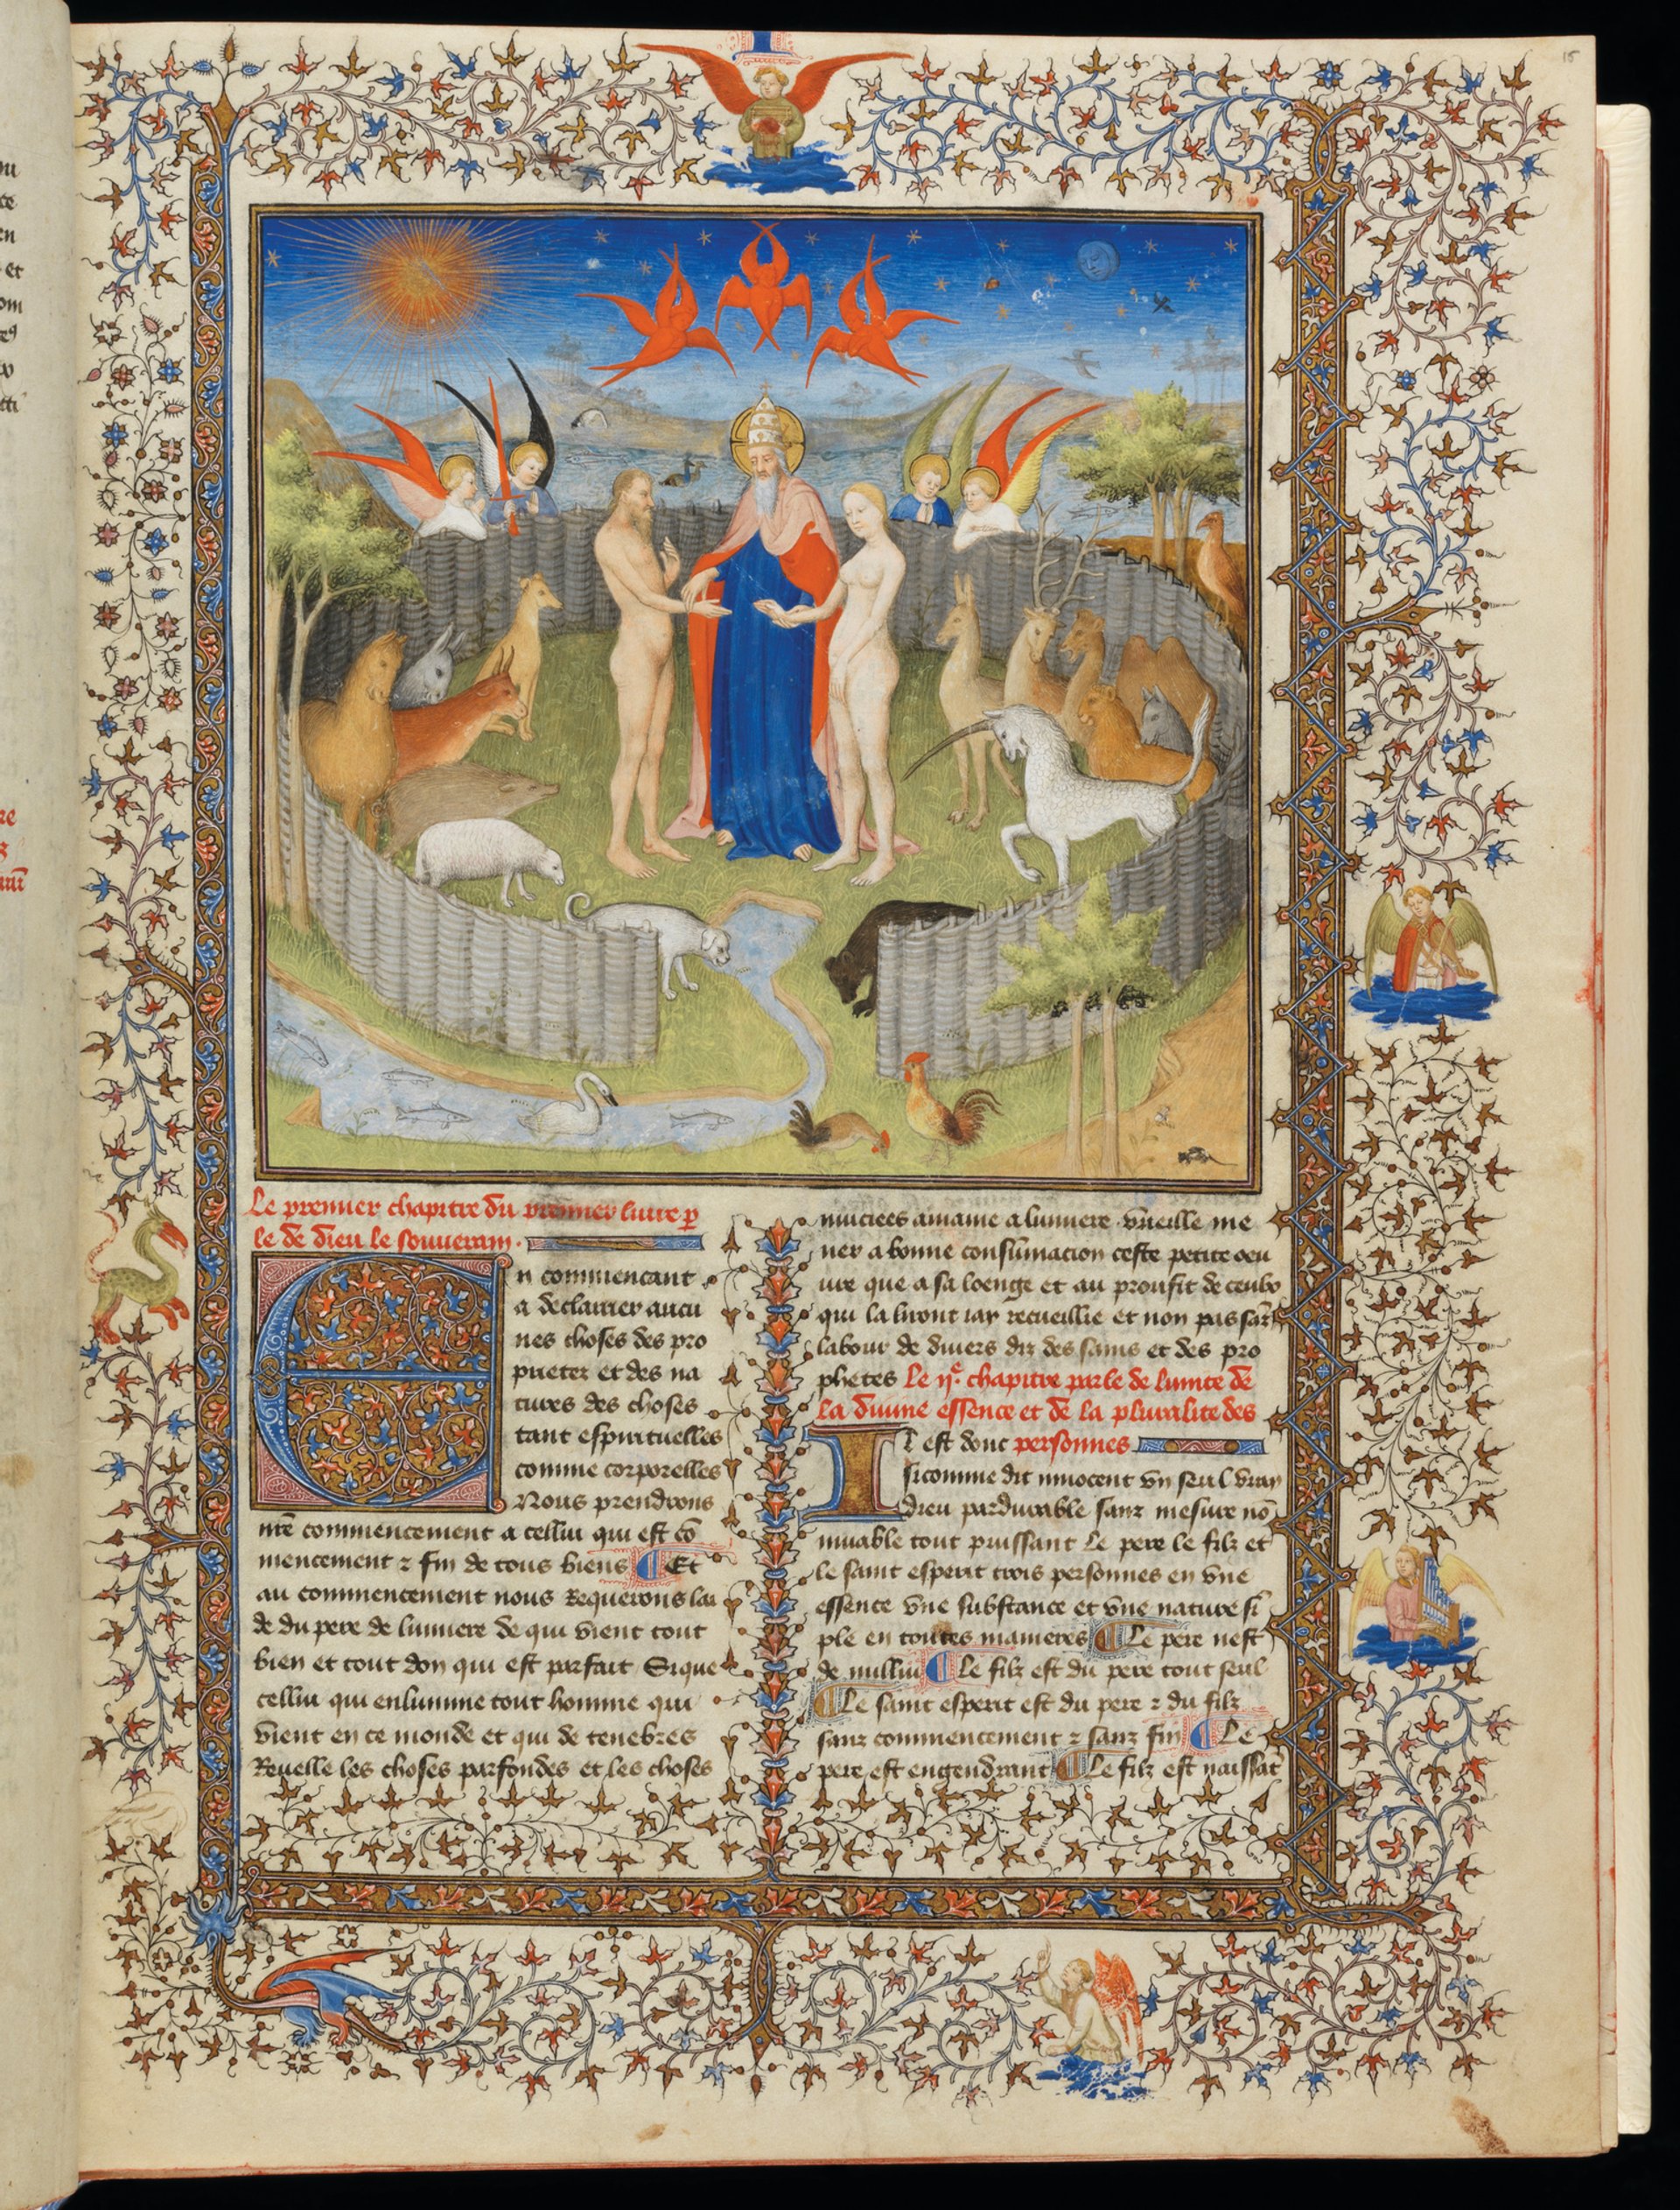 15
Le premier chapitre du premier liure p
le de dieu le souuerain.
En commencant
a declairier aucu
nes choses des pro
prietez et des na
tures des choses
tant espirituelles
comme corporelles
Nous prendrons
nr̃e commencement a cellui qui est cõ
mencement ⁊ fin de tous biens Et
au commencement nous Requerons lai
de du pere de lumiere de qui vient tout
bien et tout don qui est parfait Sique
cellui qui enlumine tout homme qui
vient en ce monde et qui de tenebres
Reuelle les choses parfondes et les choses
muciees amaine a lumiere vueille me
ner a bonne consumacion ceste petite oeu
ure que a sa loenge et au proufit de ceulx
qui la liront iay recueillie et non pas sanz
labour de diuers diz des sains et des pro
phetes Le ijᵉ chapitre parle de lunite de
la diuine essence et de la pluralite des
Il est donc personnes
sicomme dit innocent vn seul vray
dieu pardurable sanz mesure nõ
muable tout puissant Le pere le filz et
le saint esperit trois personnes en vne
essence vne substance et vne nature si
ple en toutes manieres Le pere nest
de nullui Le filz est du pere tout seul
Le saint esperit est du pere ⁊ du filz
sanz commencement ⁊ sanz fin Le
pere est engendrant Le filz est naissãt